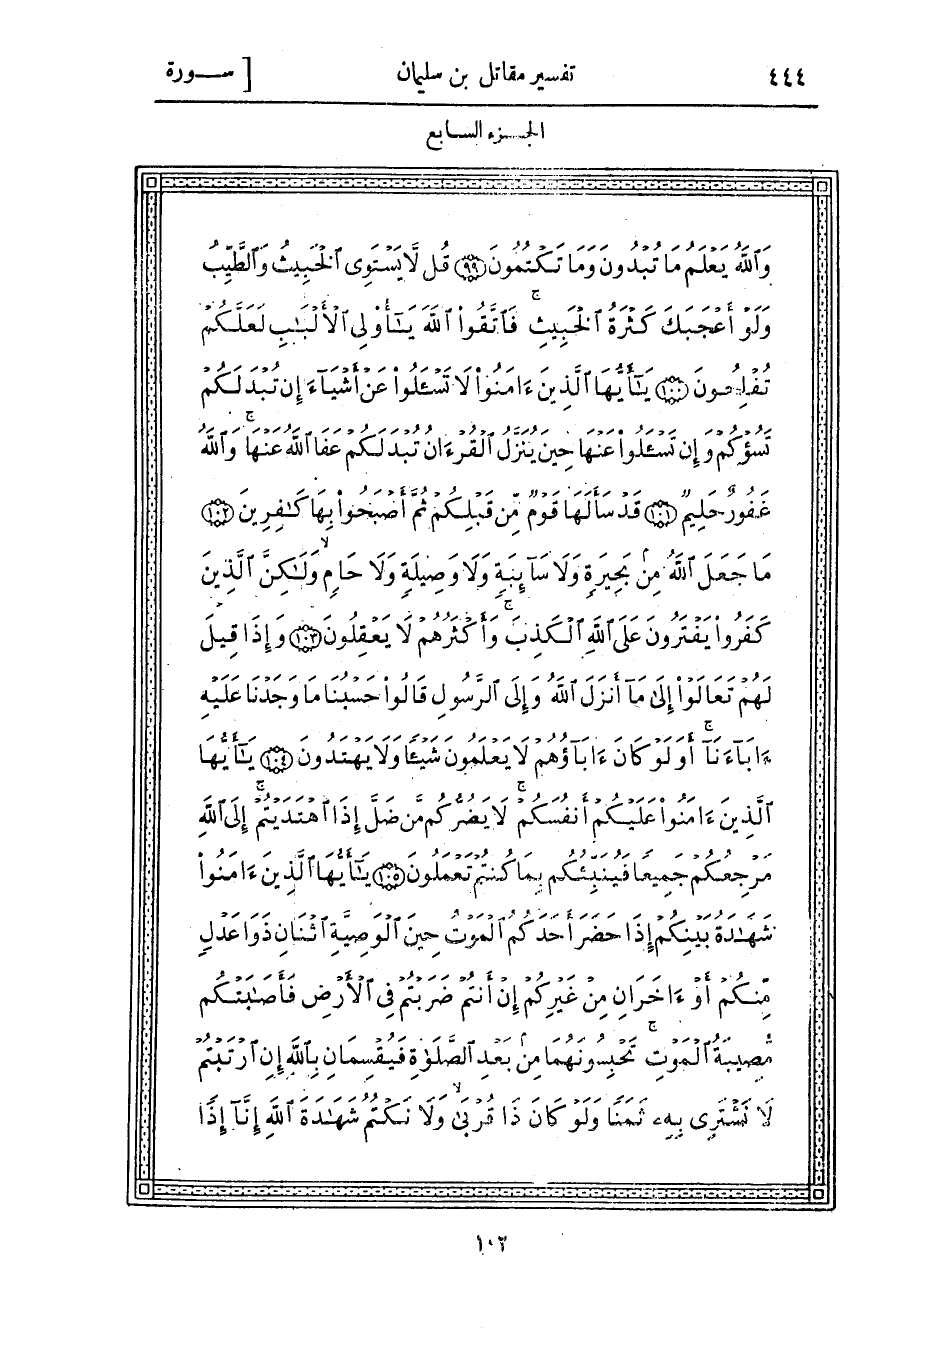 ٤٤٤ تفسير مقاتل بن سليمان [ ســورة
الجـزء السـابع
وَٱللَّهُ يَعْلَمُ مَا تُبْدُونَ وَمَا تَكْتُمُونَ ﴿٩٩﴾ قُل لَّا يَسْتَوِى ٱلْخَبِيثُ وَٱلطَّيِّبُ
وَلَوْ أَعْجَبَكَ كَثْرَةُ ٱلْخَبِيثِ ۚ فَٱتَّقُوا۟ ٱللَّهَ يَـٰٓأُو۟لِى ٱلْأَلْبَـٰبِ لَعَلَّكُمْ
تُفْلِحُونَ ﴿١٠٠﴾ يَـٰٓأَيُّهَا ٱلَّذِينَ ءَامَنُوا۟ لَا تَسْـَٔلُوا۟ عَنْ أَشْيَآءَ إِن تُبْدَ لَكُمْ
تَسُؤْكُمْ وَإِن تَسْـَٔلُوا۟ عَنْهَا حِينَ يُنَزَّلُ ٱلْقُرْءَانُ تُبْدَ لَكُمْ عَفَا ٱللَّهُ عَنْهَا ۗ وَٱللَّهُ
غَفُورٌ حَلِيمٌ ﴿١٠١﴾ قَدْ سَأَلَهَا قَوْمٌ مِّن قَبْلِكُمْ ثُمَّ أَصْبَحُوا۟ بِهَا كَـٰفِرِينَ ﴿١٠٢﴾
مَا جَعَلَ ٱللَّهُ مِنۢ بَحِيرَةٍ وَلَا سَآئِبَةٍ وَلَا وَصِيلَةٍ وَلَا حَامٍ ۙ وَلَـٰكِنَّ ٱلَّذِينَ
كَفَرُوا۟ يَفْتَرُونَ عَلَى ٱللَّهِ ٱلْكَذِبَ ۖ وَأَكْثَرُهُمْ لَا يَعْقِلُونَ ﴿١٠٣﴾ وَإِذَا قِيلَ
لَهُمْ تَعَالَوْا۟ إِلَىٰ مَآ أَنزَلَ ٱللَّهُ وَإِلَى ٱلرَّسُولِ قَالُوا۟ حَسْبُنَا مَا وَجَدْنَا عَلَيْهِ
ءَابَآءَنَآ ۚ أَوَلَوْ كَانَ ءَابَآؤُهُمْ لَا يَعْلَمُونَ شَيْـًٔا وَلَا يَهْتَدُونَ ﴿١٠٤﴾ يَـٰٓأَيُّهَا
ٱلَّذِينَ ءَامَنُوا۟ عَلَيْكُمْ أَنفُسَكُمْ ۖ لَا يَضُرُّكُم مَّن ضَلَّ إِذَا ٱهْتَدَيْتُمْ ۚ إِلَى ٱللَّهِ
مَرْجِعُكُمْ جَمِيعًا فَيُنَبِّئُكُم بِمَا كُنتُمْ تَعْمَلُونَ ﴿١٠٥﴾ يَـٰٓأَيُّهَا ٱلَّذِينَ ءَامَنُوا۟
شَهَـٰدَةُ بَيْنِكُمْ إِذَا حَضَرَ أَحَدَكُمُ ٱلْمَوْتُ حِينَ ٱلْوَصِيَّةِ ٱثْنَانِ ذَوَا عَدْلٍ
مِّنكُمْ أَوْ ءَاخَرَانِ مِنْ غَيْرِكُمْ إِنْ أَنتُمْ ضَرَبْتُمْ فِى ٱلْأَرْضِ فَأَصَـٰبَتْكُم
مُّصِيبَةُ ٱلْمَوْتِ ۚ تَحْبِسُونَهُمَا مِنۢ بَعْدِ ٱلصَّلَوٰةِ فَيُقْسِمَانِ بِٱللَّهِ إِنِ ٱرْتَبْتُمْ
لَا نَشْتَرِى بِهِۦ ثَمَنًا وَلَوْ كَانَ ذَا قُرْبَىٰ ۙ وَلَا نَكْتُمُ شَهَـٰدَةَ ٱللَّهِ إِنَّآ إِذًا
١٠٢